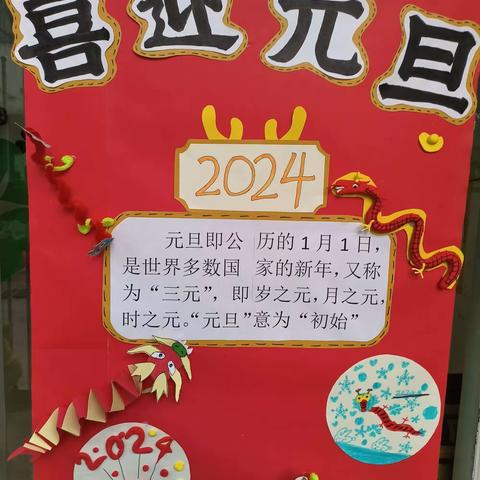 喜迎元旦
2024
元旦即公历的1月1日，
是世界多数国家的新年，又称
为“三元”，即岁之元，月之元，
时之元。“元旦”意为“初始”
2024